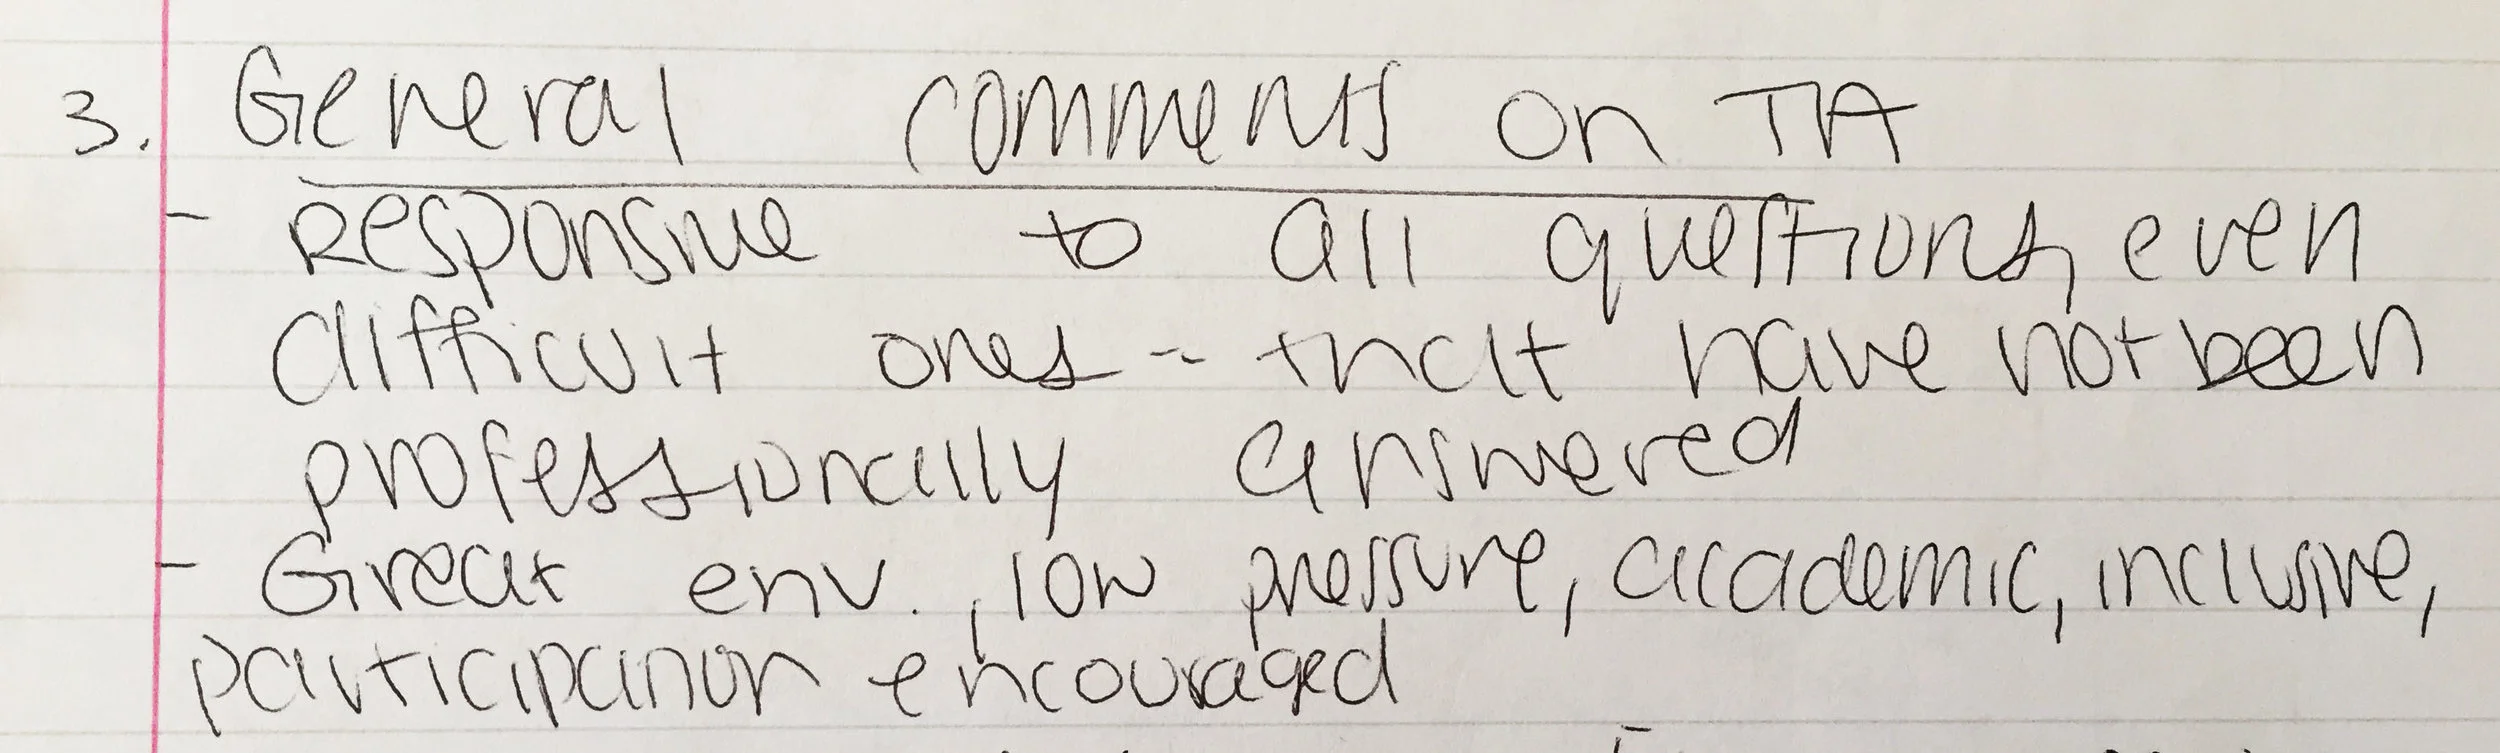 3. General comments on TA
- Responsive to all questions, even
difficult ones -- that have not been
professionally answered
- Great env., low pressure, academic, inclusive,
participation encouraged